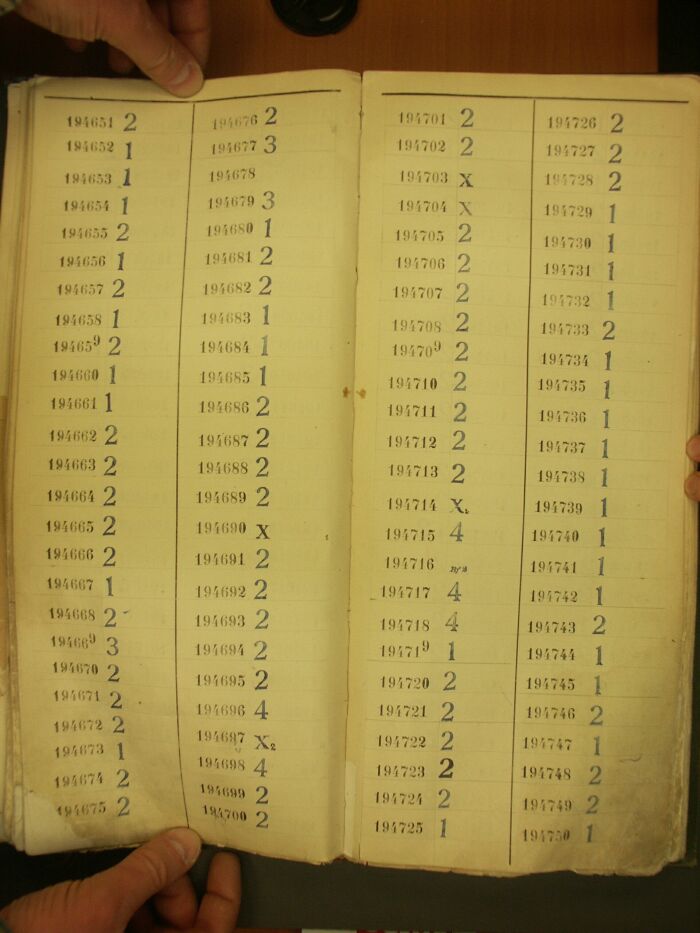 194651 2
194652 1
194653 1
194654 1
194655 2
194656 1
194657 2
194658 1
194659 2
194660 1
194661 1
194662 2
194663 2
194664 2
194665 2
194666 2
194667 1
194668 2
194669 3
194670 2
194671 2
194672 2
194673 1
194674 2
194675 2
194676 2
194677 3
194678
194679 3
194680 1
194681 2
194682 2
194683 1
194684 1
194685 1
194686 2
194687 2
194688 2
194689 2
194690 X
194691 2
194692 2
194693 2
194694 2
194695 2
194696 4
194697 X2
194698 4
194699 2
194700 2
194701 2
194702 2
194703 X
194704 X
194705 2
194706 2
194707 2
194708 2
194709 2
194710 2
194711 2
194712 2
194713 2
194714 X2
194715 4
194716
194717 4
194718 4
194719 1
194720 2
194721 2
194722 2
194723 2
194724 2
194725 1
194726 2
194727 2
194728 2
194729 1
194730 1
194731 1
194732 1
194733 2
194734 1
194735 1
194736 1
194737 1
194738 1
194739 1
194740 1
194741 1
194742 1
194743 2
194744 1
194745 1
194746 2
194747 1
194748 2
194749 2
194750 1